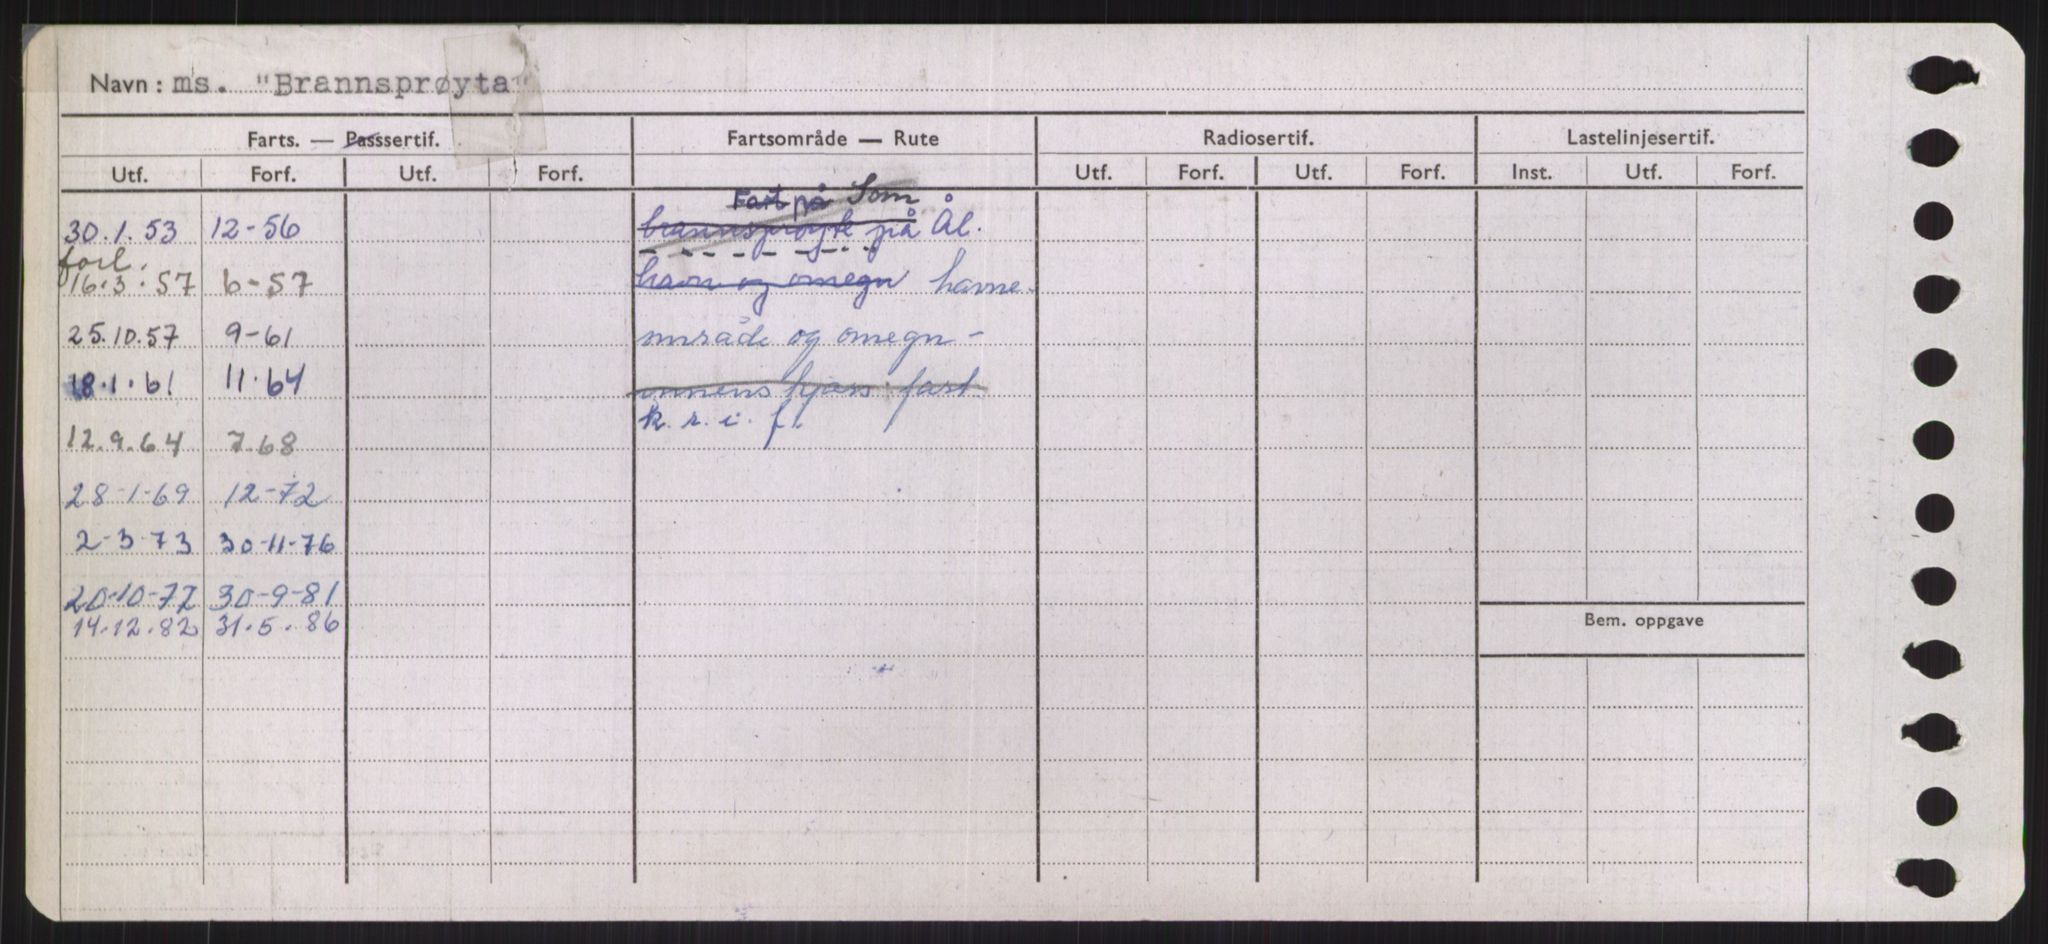 Navn: ms. "Brannsprøyta"
Farts. — Passsertif. Fartsområde — Rute Radiosertif. Lastelinjesertif.
Utf. Forf. Utf. Forf. Utf. Forf. Utf. Forf. Inst. Utf. Forf.
Fart på Som
30.1.53 12-56 brannsprøyte på Ål.
forl.
16.3.57 6-57 havn og omegn havne-
25.10.57 9-61 område og omegn -
18.1.61 11.64 innenskjærs fart
k. r. i. f.
12.9.64 7.68
28-1-69 12-72
2-3-73 30-11-76
20-10-77 30-9-81
14.12.82 31.5.86
Bem. oppgave